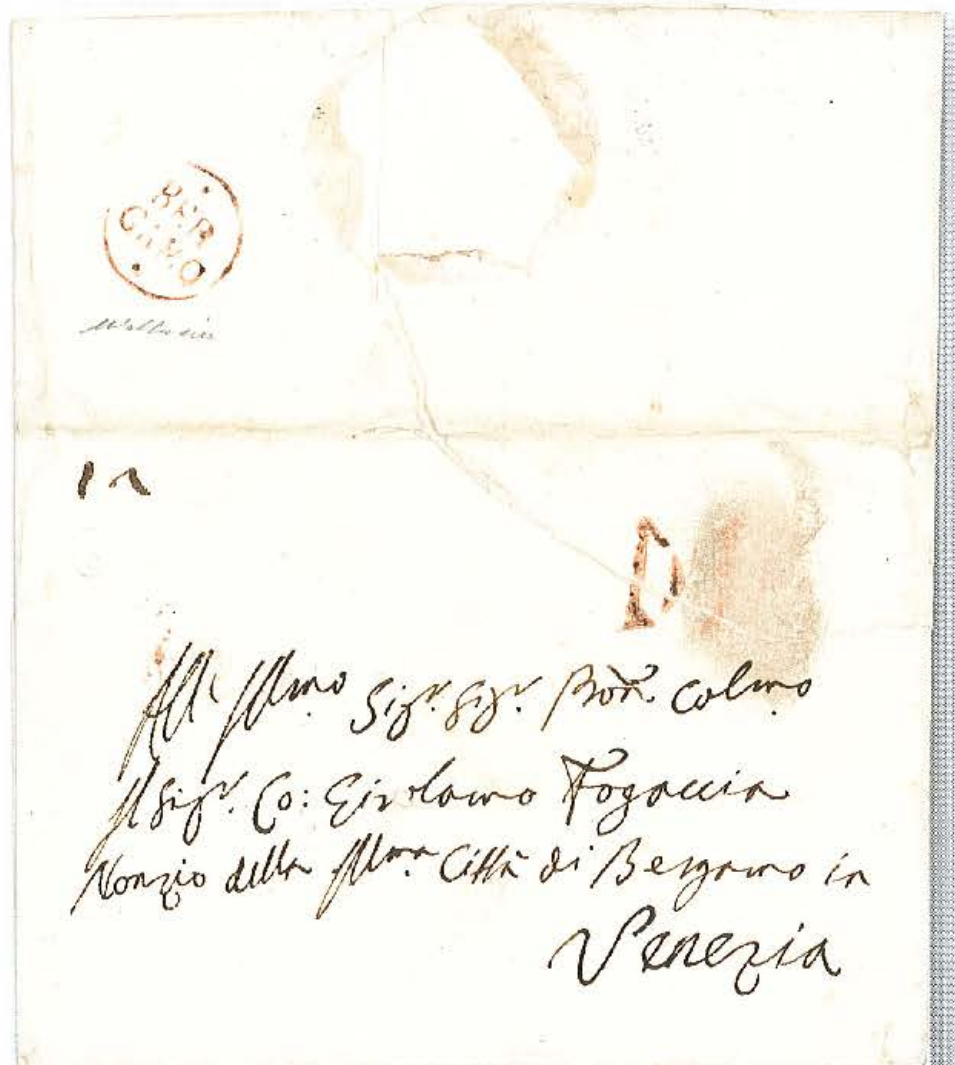 BER
GAMO
D
All Illmo Sigr. Sigr. Pron. Colmo
Il Sigr. Co: Girolamo Fogaccia
Nonzio della Illma Città di Bergamo in
Venezia